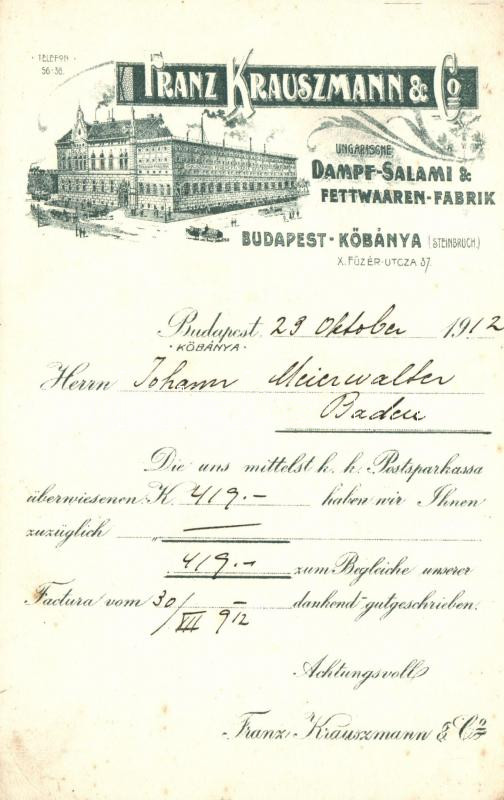 TELEFON
56-38.
FRANZ KRAUSZMANN & Co
UNGARISCHE
DAMPF-SALAMI &
FETTWAAREN-FABRIK
BUDAPEST-KŐBÁNYA (STEINBRUCH.)
X. FÜZÉR-UTCZA 37.
Budapest, 23 Oktober 1912
· KŐBÁNYA ·
Herrn Johann Meierwalter
Baden
Die uns mittelst k. k. Postsparkassa
überwiesenen K 419.- haben wir Ihnen
zuzüglich " —
419.- zum Begleiche unserer
Factura vom 30/VII 912 dankend gutgeschrieben.
Achtungsvoll
Franz Krauszmann & Co